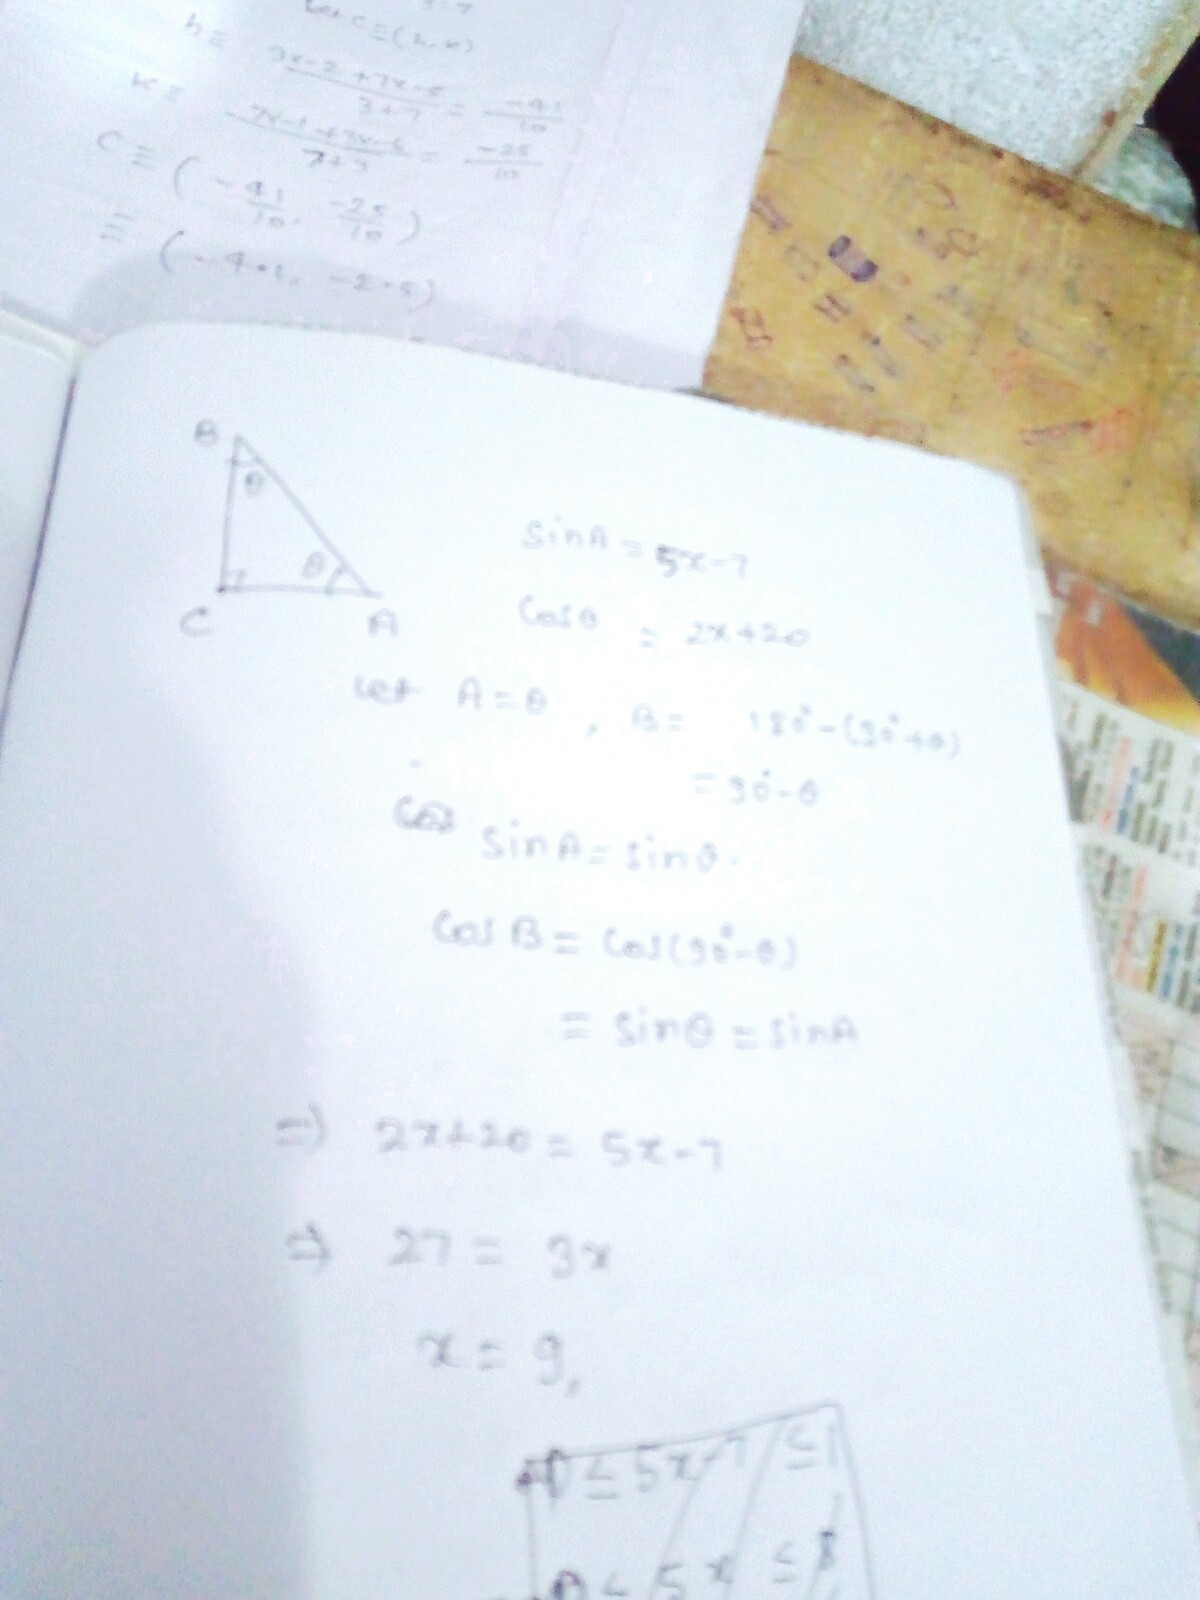 Let C ≡ (h, k)
h ≡ 3x-2 + 7x-5 / 3+7 = -41/10
K ≡ 7x-1 + 3x-6 / 7+3 = -25/10
C ≡ (-41/10, -25/10)
≡ (-4.1, -2.5)
B
θ
θ
C A
sinA = 5x-7
Cosθ = 2x+20
Let A = θ, B = 180°-(90°+θ)
= 90°-θ
Cos
sinA = sinθ.
Cos B = Cos(90°-θ)
= sinθ = sinA
=> 2x+20 = 5x-7
=> 27 = 3x
x = 9,
≤ 5x-7 ≤ 1
5x ≤ 8